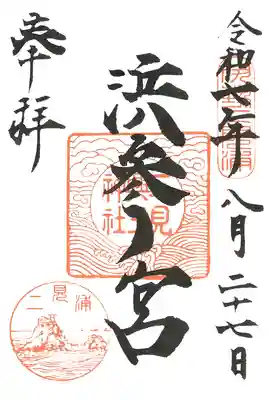 令和七年八月二十七日
浜参宮
奉拝
二見
神社
二見浦